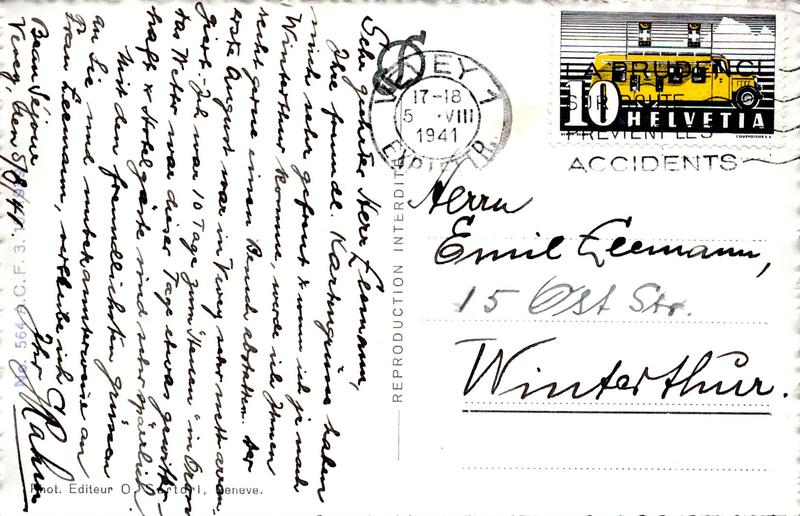 Sehr geehrter Herr Eemann,
Ihre freundl. Kartengrüsse haben
mich sehr gefreut & wenn ich je nach
Winterthur komme, werde ich Ihnen
recht gerne einen Besuch abstatten. Der
erste August war in Vevey sehr nett arran-
giert. Ich war 10 Tage zum "
das Wetter war dieser Tage etwas gewitter-
haft & Hotelgäste sind sehr spärlich.
Mit den freundlichsten Grüssen
an Sie und unbekannterweise an
Frau Eemann, verbleibe ich
Ihr
Rahn
Beau Séjour
Vevey, den 5/8/41.
No. 564 A.C.F. 3.
REPRODUCTION INTERDITE
Phot. Editeur O. Sartori, Genève.
VEVEY 1
17-18
5. VIII
1941
10 HELVETIA
COURVOISIER S.A.
LA PRUDENCE
SUR ROUTE
PREVIENT LES
ACCIDENTS
Herrn
Emil Eemann,
15 Ost Str.
Winterthur.